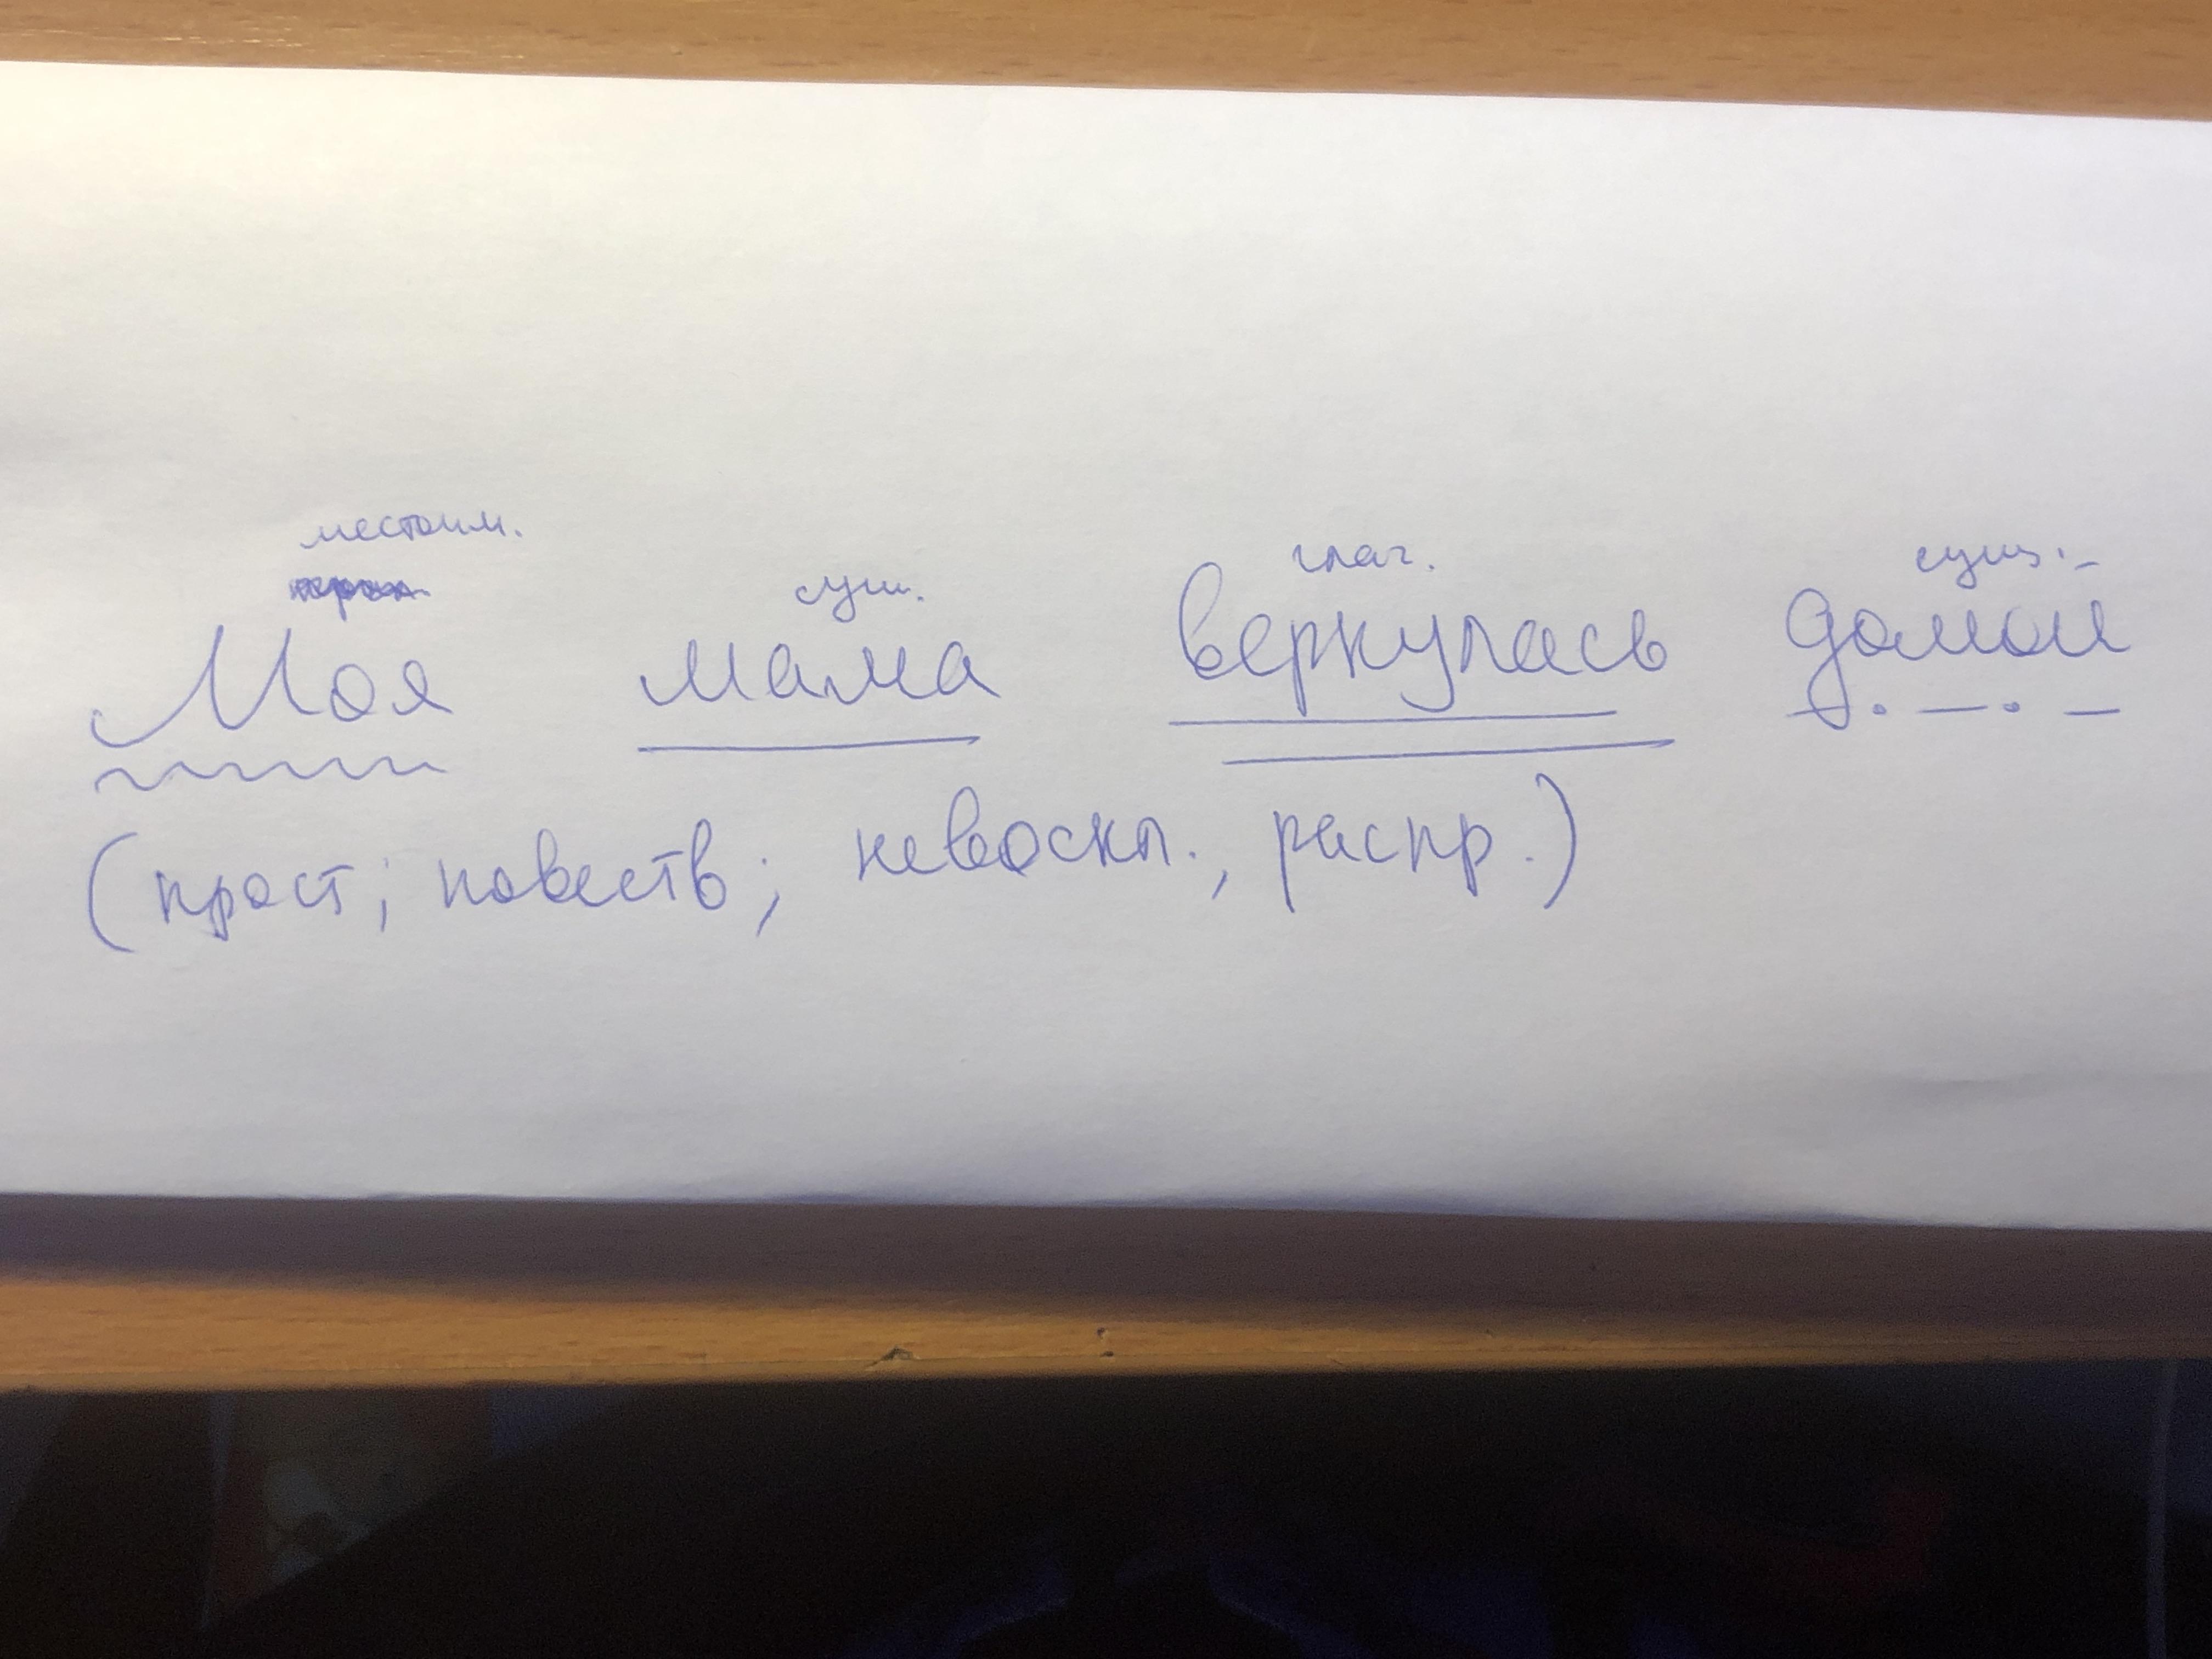 местоим.
сущ. глаг. сущ.
Моя мама вернулась домой
(прост; повеств; невоскл., распр.)